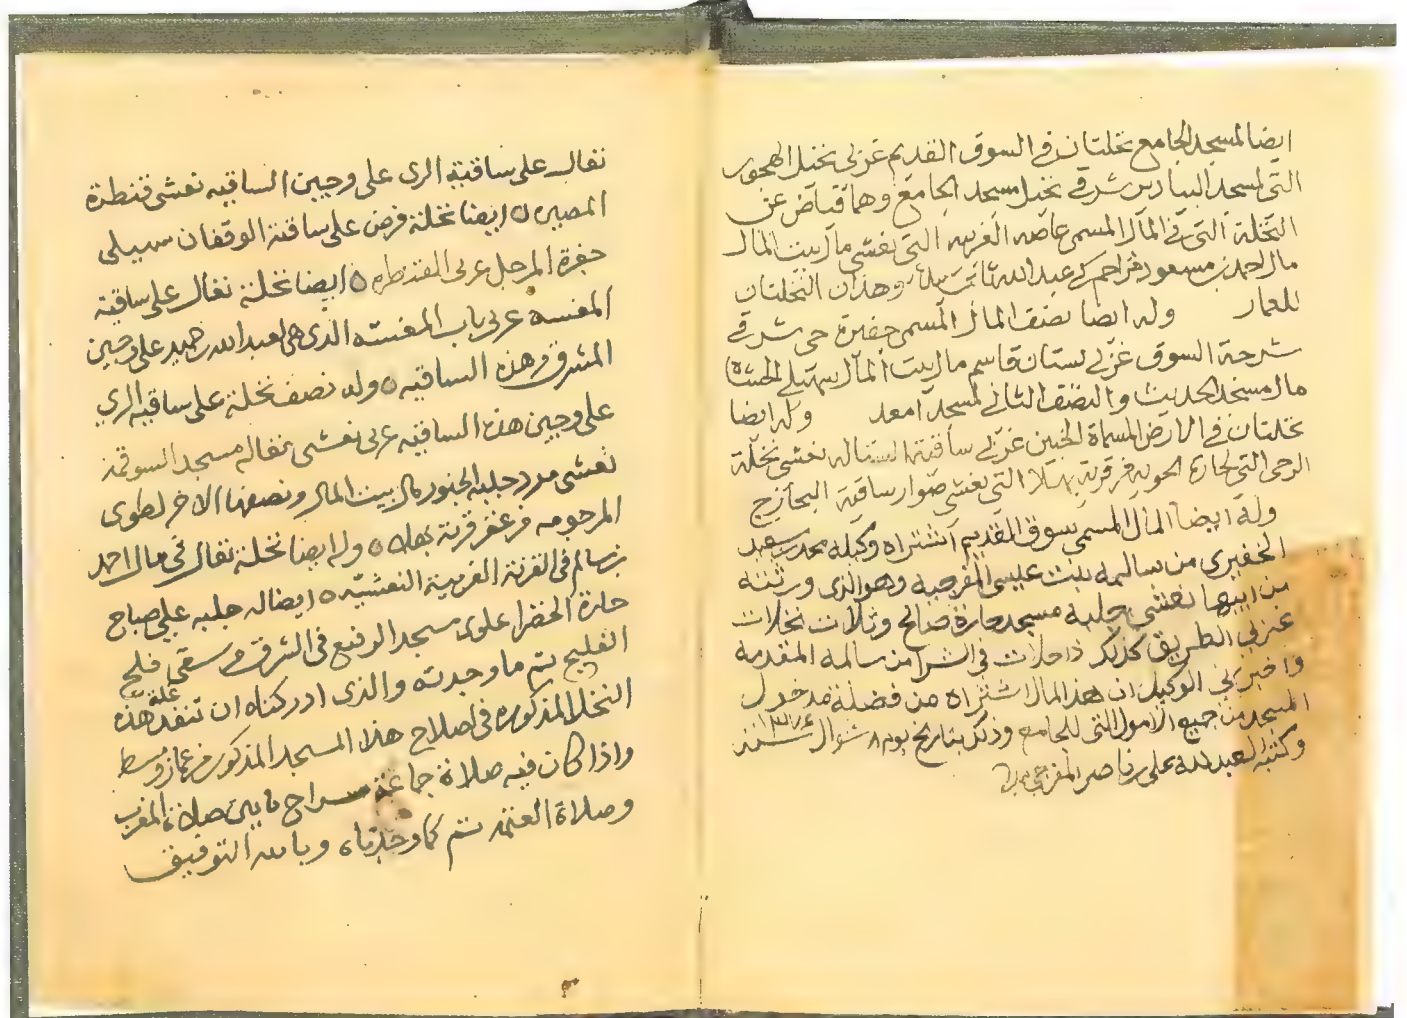 ايضا لمسجد الجامع نخلتان في السوق القديم غربي نخيل الهجور
التي لمسجد البيادر شرقي نخيل مسجد الجامع وهما قياض عن
النخلة التي في المال المسمى عاضد الغربيه التي نعشي مال بيت المال
مال احمد بن مسعود عبد الله وهذان النخلتان
للعمار وله ايضا نصف المال المسمى حفيرة حي شرقي
شرجة السوق غربي بستان قاسم مال بيت المال سهيلي
مال مسجد الحديث والنصف الثاني لمسجد وله ايضا
نخلتان في الارض المسماة غربي ساقية نعشي نخلة
الرحى التي لحارة الحويه من قرية بهلا التي نعشي صوار ساقية
وله ايضا المال المسمى سوق القديم اشتراه وكيله محمد بن سعيد
من سالمه بنت عيسى المفرجيه وهو الذي ورثته
من ابيها نعشي جلبة مسجد حارة صالح وثلاث نخلات
غربي الطريق كذلك داخلات في الشرا من سالمه المقدمة
واخبرني الوكيل ان هذا المال اشتراه من فضلة مدخول
المسجد من جميع الامول التي للجامع وذلك بتاريخ يوم ٨ شوال سنة
وكتبه العبد لله علي بن ناصر المفرجي بيده
نغال على ساقية الري على وجين الساقيه نعشي قنطرة
ايضا نخلة فرض على ساقية الوقفان سهيلي
حفرة المرجل غربي القنطره ٥ ايضا نخلة نغال على ساقية
المغسه غربي باب المغسه الذي هي لعبد الله بن حميد على وجين
المشرقي من هذه الساقيه ٥ وله نصف نخلة على ساقيه الري
على وجين هذه الساقيه غربي نعشي نغاله مسجد السوقمه
نعشي مرد جلبه الجنور مال بيت المال ونصفها الاخر لطوى
المرحومه من عقر قرية بهلا ٥ وله ايضا نخلة نغال في مال احمد
بن سالم في القرنة الغربية النعشيه ٥ ايضا له جلبه علي صباح
حارة الخضرا علوي مسجد الرفيع في الشرقي من سقي فلج
الفليج تم ما وجدته والذي ادركناه ان تنفذ غلة هذه
النخل المذكوره في اصلاح هذا المسجد المذكور من عماز وسط
واذا كان فيه صلاة جماعة سراج ما بين صلاة المغرب
وصلاة العتمه تم كما وجدناه وبالله التوفيق